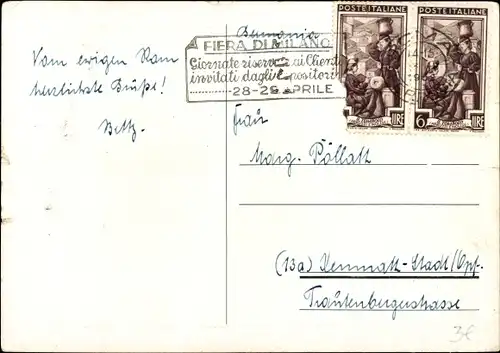 Vom ewigen Rom
herzlichste Grüße!
Betty.
Germania
FIERA DI MILANO
Giornate riservate ai Clienti
invitati dagli Espositori
28-29 APRILE
POSTE ITALIANE
POSTE ITALIANE
LIRE
6 LIRE
Frau
Marg. Pöllath
(13a) Kemnath-Stadt/Opf.
Trautenbergerstrasse
3€